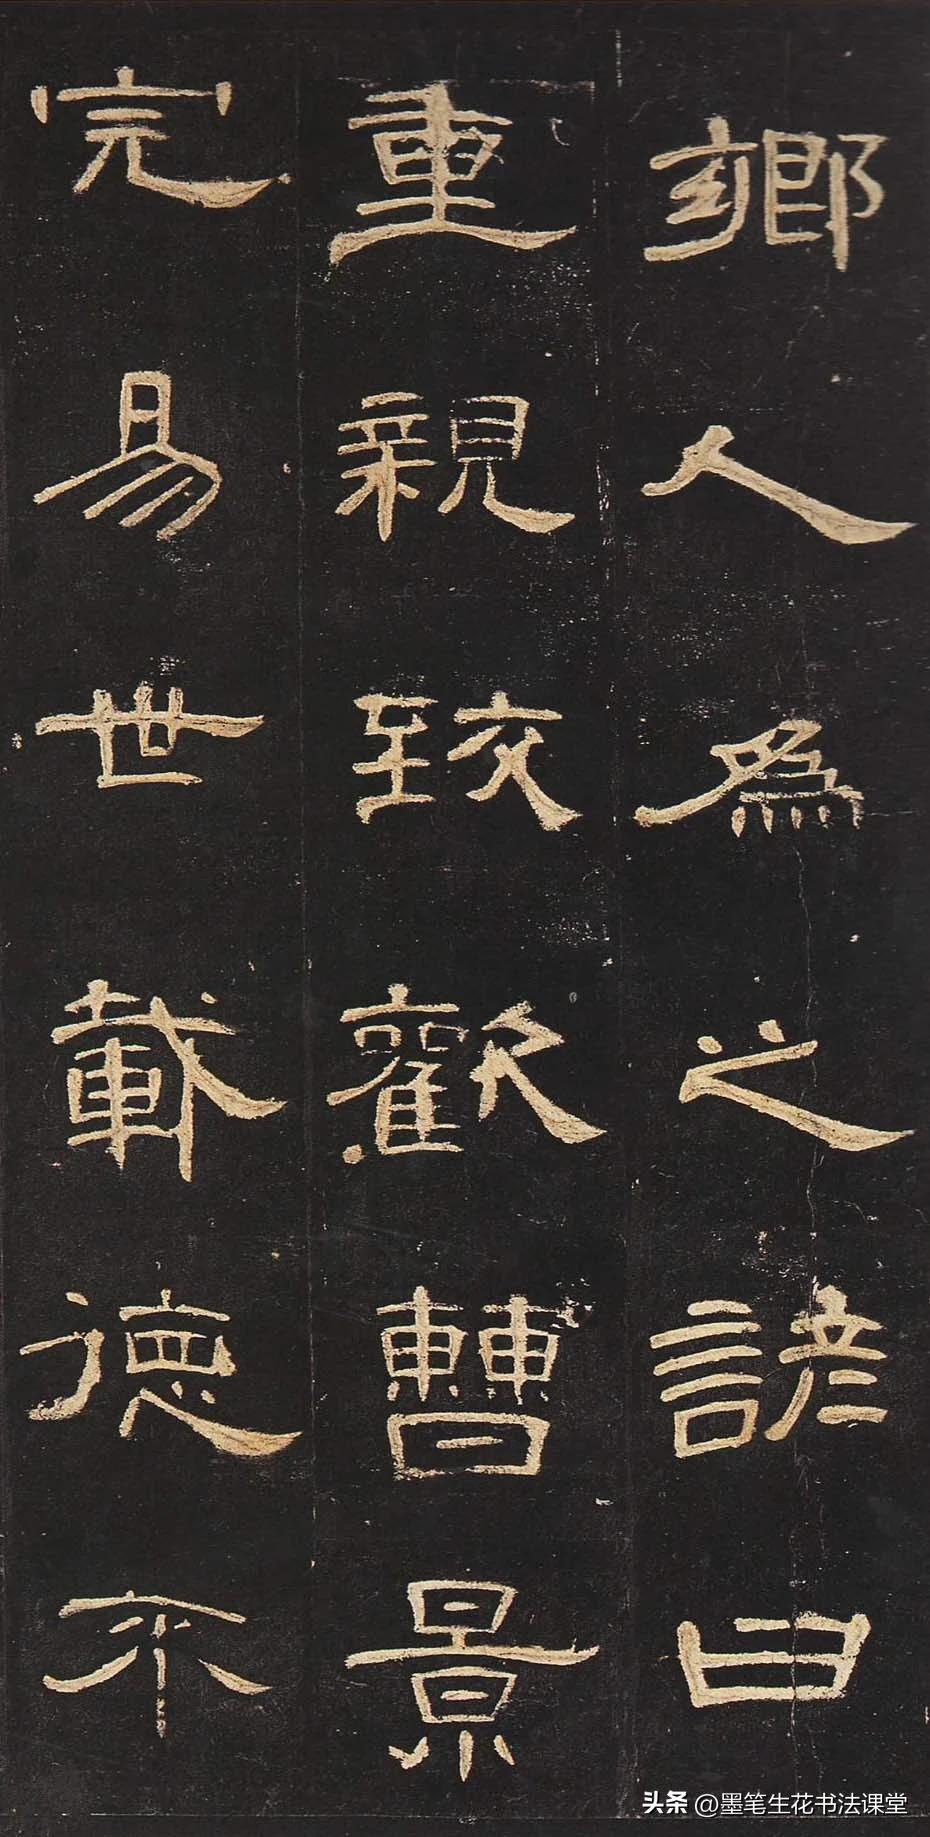 鄉人為之諺曰
重親致歡曹景
完易世載德不
头条 @墨笔生花书法课堂